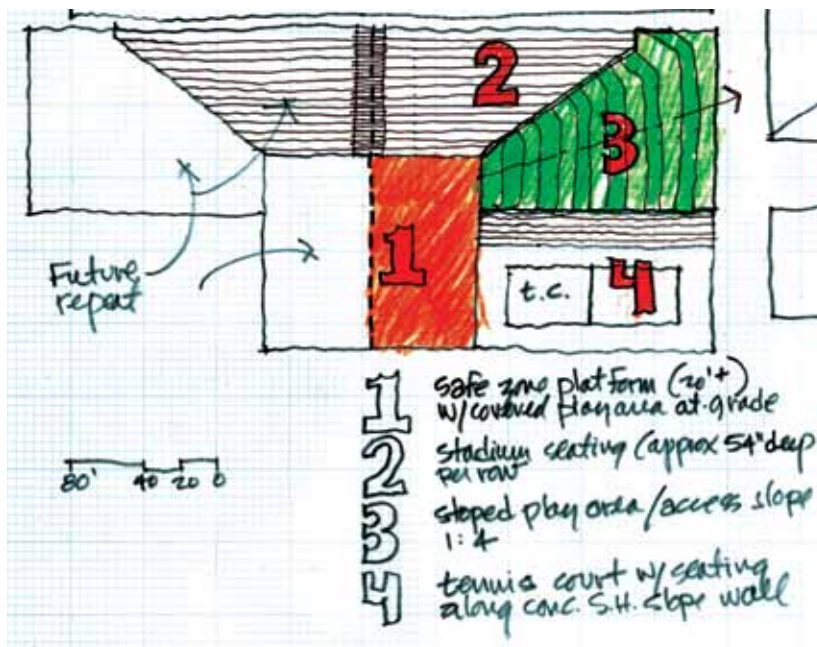 2
3
1
4
t.c.
Future
repeat
80' 40 20 0
1 safe zone platform (20'+)
w/covered play area at grade
2 stadium seating (approx 54" deep
per row
3 sloped play area/access slope
1:4
4 tennis court w/seating
along conc. S.H. slope wall